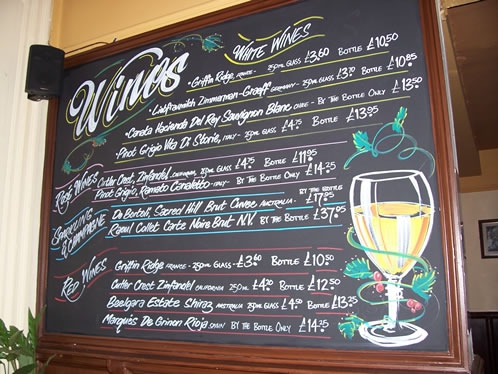 Wines
WHITE WINES
• Griffin Ridge, FRANCE - 250ML GLASS £3.60 BOTTLE £10.50
• Liebfraumilch Zimmerman-Graeff GERMANY - 250ML GLASS £3.70 BOTTLE £10.85
• Canela Hacienda Del Rey Sauvignon Blanc CHILE - BY THE BOTTLE ONLY £13.50
Pinot Grigio Vita Di Storie, ITALY - 250ML GLASS £4.75 BOTTLE £13.95
ROSE WINES
Cutler Crest, Zinfandel, CALIFORNIA 250ML GLASS £4.25 BOTTLE £11.95
Pinot Grigio, Ramato Canaletto - ITALY - BY THE BOTTLE ONLY £14.25
SPARKLING & CHAMPAGNE
De Bortoli, Sacred Hill Brut Cuvee, AUSTRALIA - BY THE BOTTLE £17.95
Raoul Collet Carte Noire Brut N.V. BY THE BOTTLE £37.95
RED WINES
Griffin Ridge FRANCE - 250ML GLASS - £3.60 BOTTLE £10.50
Cutler Crest Zinfandel CALIFORNIA 250ML £4.20 BOTTLE £12.50
Beelgara Estate Shiraz AUSTRALIA 250ML GLASS £4.50 BOTTLE £13.25
Marques De Grinon Rioja SPAIN BY THE BOTTLE ONLY £14.25